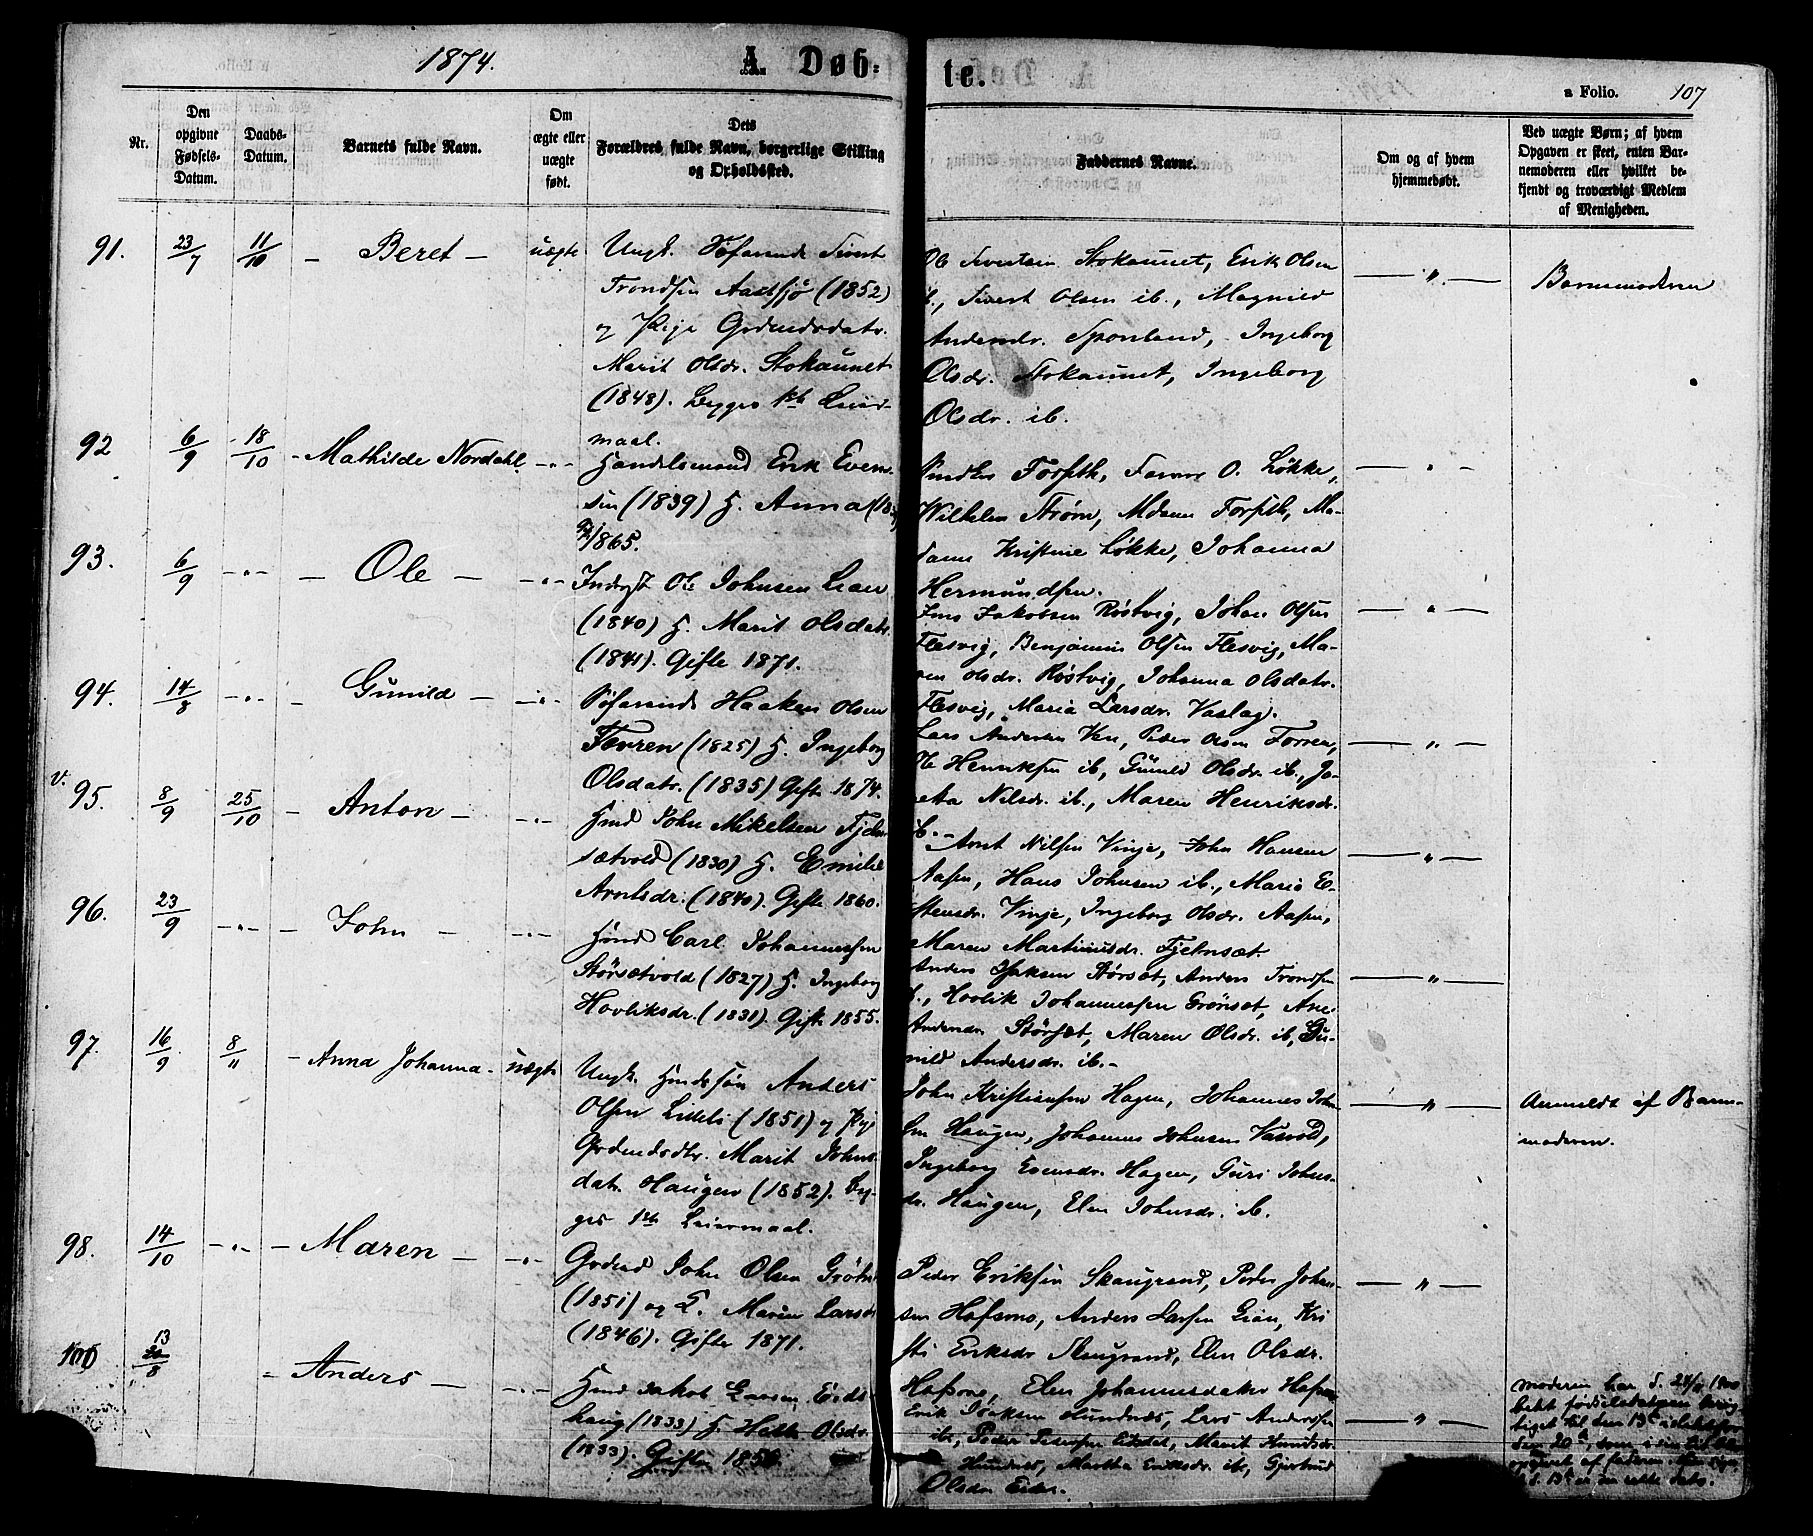 1874.
A. Døb-
te.
a Folio. 107
Nr.
Den opgivne Fødsels-Datum.
Daabs-Datum.
Barnets fulde Navn.
Om ægte eller uægte født.
Dets Forældres fulde Navn, borgerlige Stilling og Opholdssted.
Faddernes Navne.
Om og af hvem hjemmedøbt.
Ved uægte Børn; af hvem Opgaven er skeet, enten Barnemoderen eller hvilket bekjendt og troværdigt Medlem af Menigheden.
91. 23/7 11/10 - Beret - uægte
Ungk. Søfarende Sivert
Trondsen Aastsjø (1852)
og Pige Grdmdsdatr.
Marit Olsdr. Stokaunet
(1848). Begges 1ste Leier-
maal.
Ole Sivertsen Stokaunet, Erik Olsen
ib., Sivert Olsen ib., Magnild
Andersdr. Sponland, Ingeborg
Olsdr. Stokaunet, Ingeborg
Olsdr. ib.
— " —
Barnemoderen
92 6/9 18/10 - Mathilde Nordahl - " -
Handelsmand Erik Even-
sen (1839) H. Anna
1865.
Forseth, O. Løkke,
Wilhelm Strøm, Mdam Forseth, Ma-
dame Kristine Løkke, Johanna
Hermundsen.
— " —
93. 6/9 - " - - Ole - - " -
Indrgst Ole Johnsen Lian
(1840) H. Marit Olsdatr.
(1841). Gifte 1871.
Jens Jakobsen Røstvig, Johan Olsen
Flesvig, Benjamin Olsen Flesvig, Ma-
ren Olsdr. Røstvig, Johanna Olsdatr.
Flesvig, Maria Larsdr. Vaslag.
— " —
94. 14/8 - " - - Gunild - - " -
Søfarende Haaken Olsen
Forren (1825) H. Ingeborg
Olsdatr. (1835) Gifte 1874.
Lars Andersen Ven, Peder Olsen Forren,
Ole Henriksen ib., Gunild Olsdr. ib., Jo-
Nilsdr. ib., Maren Henriksdr.
ib. -
— " —
v. 95. 8/9 25/10 - Anton - - " -
Hmd John Mikelsen Fjeln-
sætvold (1830) H. Emilie
Arntsdr. (1840). Gifte 1860.
Arnt Nilsen Vinje, John Hansen
Aasen, Hans Johnsen ib., Maria E-
stensdr. Vinje, Ingeborg Olsdr. Aasen,
Maren Martinusdr. Fjelnsæt.
— " —
96. 23/9 - " - - John - - " -
Hmd Carl Johannessen
Størsætvold (1827) H. Ingeborg
Hovliksdr. (1831). Gifte 1855.
Anders Isaksen Størsæt, Anders Trondsen
ib., Hovlik Johannessen Grønsæt, Ane
Andersdr. Størsæt, Maren Olsdr. ib., Gu-
nild Andersdr. ib. -
— " —
97. 16/9 8/11 - Anna Johanna - uægte
Ungk. Hmdssøn Anders
Olsen Lilleli (1851) og Pige
Grdmdsdtr. Marit Johns-
datr. Haugen (1852). Beg-
ges 1ste Leiermaal.
John Kristiansen Hagen, Johannes John-
sen Haugen, Johannes Johnsen Vasvold,
Ingeborg Evensdr. Hagen, Guri Johns-
dr. Haugen, Elen Johnsdr. ib.
— " —
Anmeldt af Barne-
moderen.
98. 14/10 - " - - Maren - - " -
Grdmd John Olsen
(1851) og H. Maren Larsdr
(1846). Gifte 1871.
Peder Eriksen Skaugrand, Peder Johan-
sen Hafsmo, Anders Larsen Lian, Kri-
sti Eriksdr Skaugrand, Elen Olsdr.
Hafsmo, Elen Johannesdatter Hafsmo
— " —
100 13/8 - Anders - - " -
Hmd Jakob Larsen Eids-
haug (1833) H. Olsdr.
(1833). Gifte 1856
Erik Isaksen Hundnæs, Lars Anderssen
ib., Peder Petersen, Marit Knudsdr.
Hundnæs, Martha Eriksdr. ib., Gjertrud
Olsdr Eide.
— " —
Moderen har d.
fødselsdatoen berig-
tiget til den 13de istedetfor
den 20de, som
opgivet af faderen
d. 13de er den rette dato.